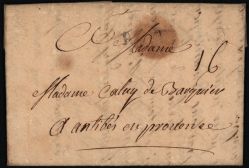 Madame
16
Madame Caluy de Barquier
a antibes en provence